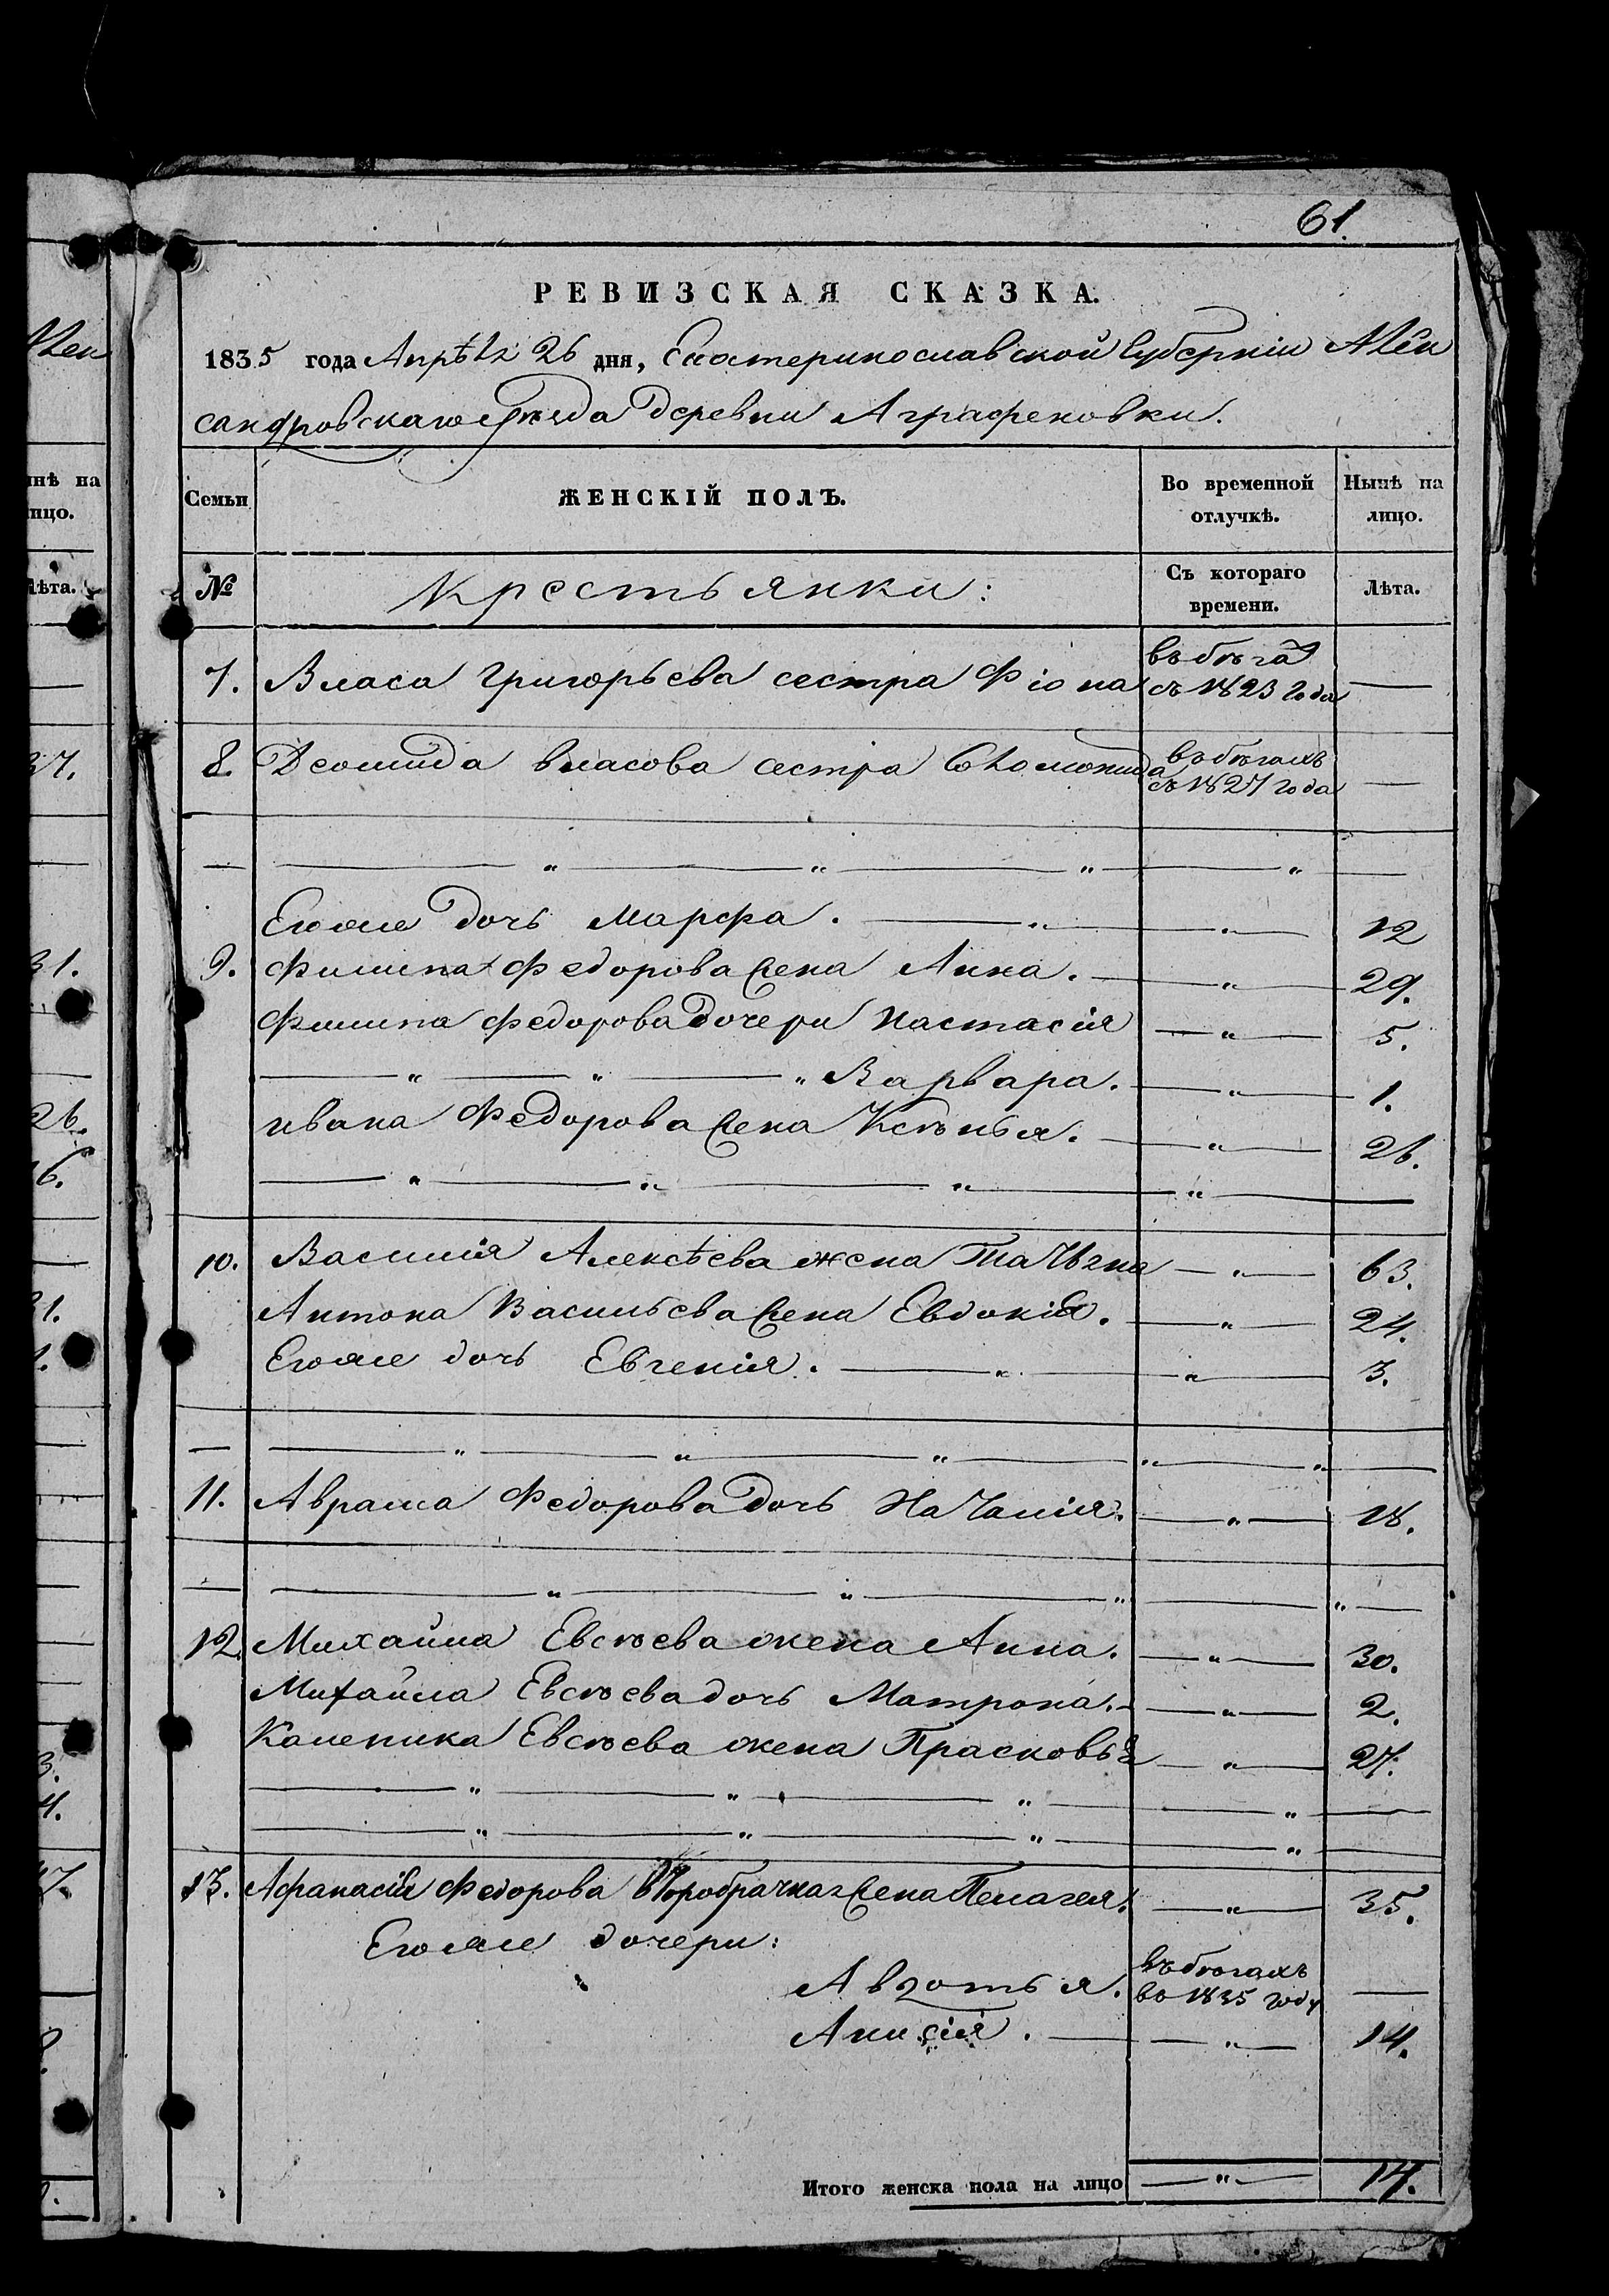 61.
РЕВИЗСКАЯ СКАЗКА.
1835 года Апрѣля 26 дня, Екатеринославской Губерніи Алек
сандровскаго уѣзда деревни Аграфеновки.
Семьи
ЖЕНСКІЙ ПОЛЪ.
Во временной отлучкѣ.
Нынѣ на лицо.
№
Крестьянки:
Съ котораго времени.
Лѣта.
7. Власа Григорьева сестра Фіона въ бѣгахъ съ 1823 года —
8. Деомида Власова сестра Соломонида въ бѣгахъ съ 1827 года —
— — „ — „ — „ — „ —
Егоже дочь Марфа. — „ — „ — 12
9. Филипа Федорова жена Анна. — „ — 29.
Филипа Федорова дочери Настасія — „ — 5.
— „ — „ — „ Варвара. — „ — 1.
Ивана Федорова жена Ксѣнья. — „ — 26.
— „ — „ — „ — „ —
10. Василія Алексѣева жена Татьяна — „ — 63.
Антона Васильева жена Евдокія. — „ — 24.
Егоже дочь Евгенія. — „ — „ — 3.
— — „ — „ — „ — „ — „ —
11. Аврама Федорова дочь Наталія. — „ — 18.
— — „ — „ — „ — „ —
12. Михайла Евсѣева жена Анна. — „ — 30.
Михайла Евсѣева дочь Матрона. — „ — 2.
Каленика Евсѣева жена Прасковья — „ — 27.
— „ — „ — „ — „ —
— „ — „ — „ — „ —
13. Афанасія Федорова второбрачная жена Пелагея. — „ — 35.
Егоже дочери:
Авдотья. въ бѣгахъ въ 1835 году —
Анисія. — „ — 14.
Итого женска пола на лицо — „ — 14.